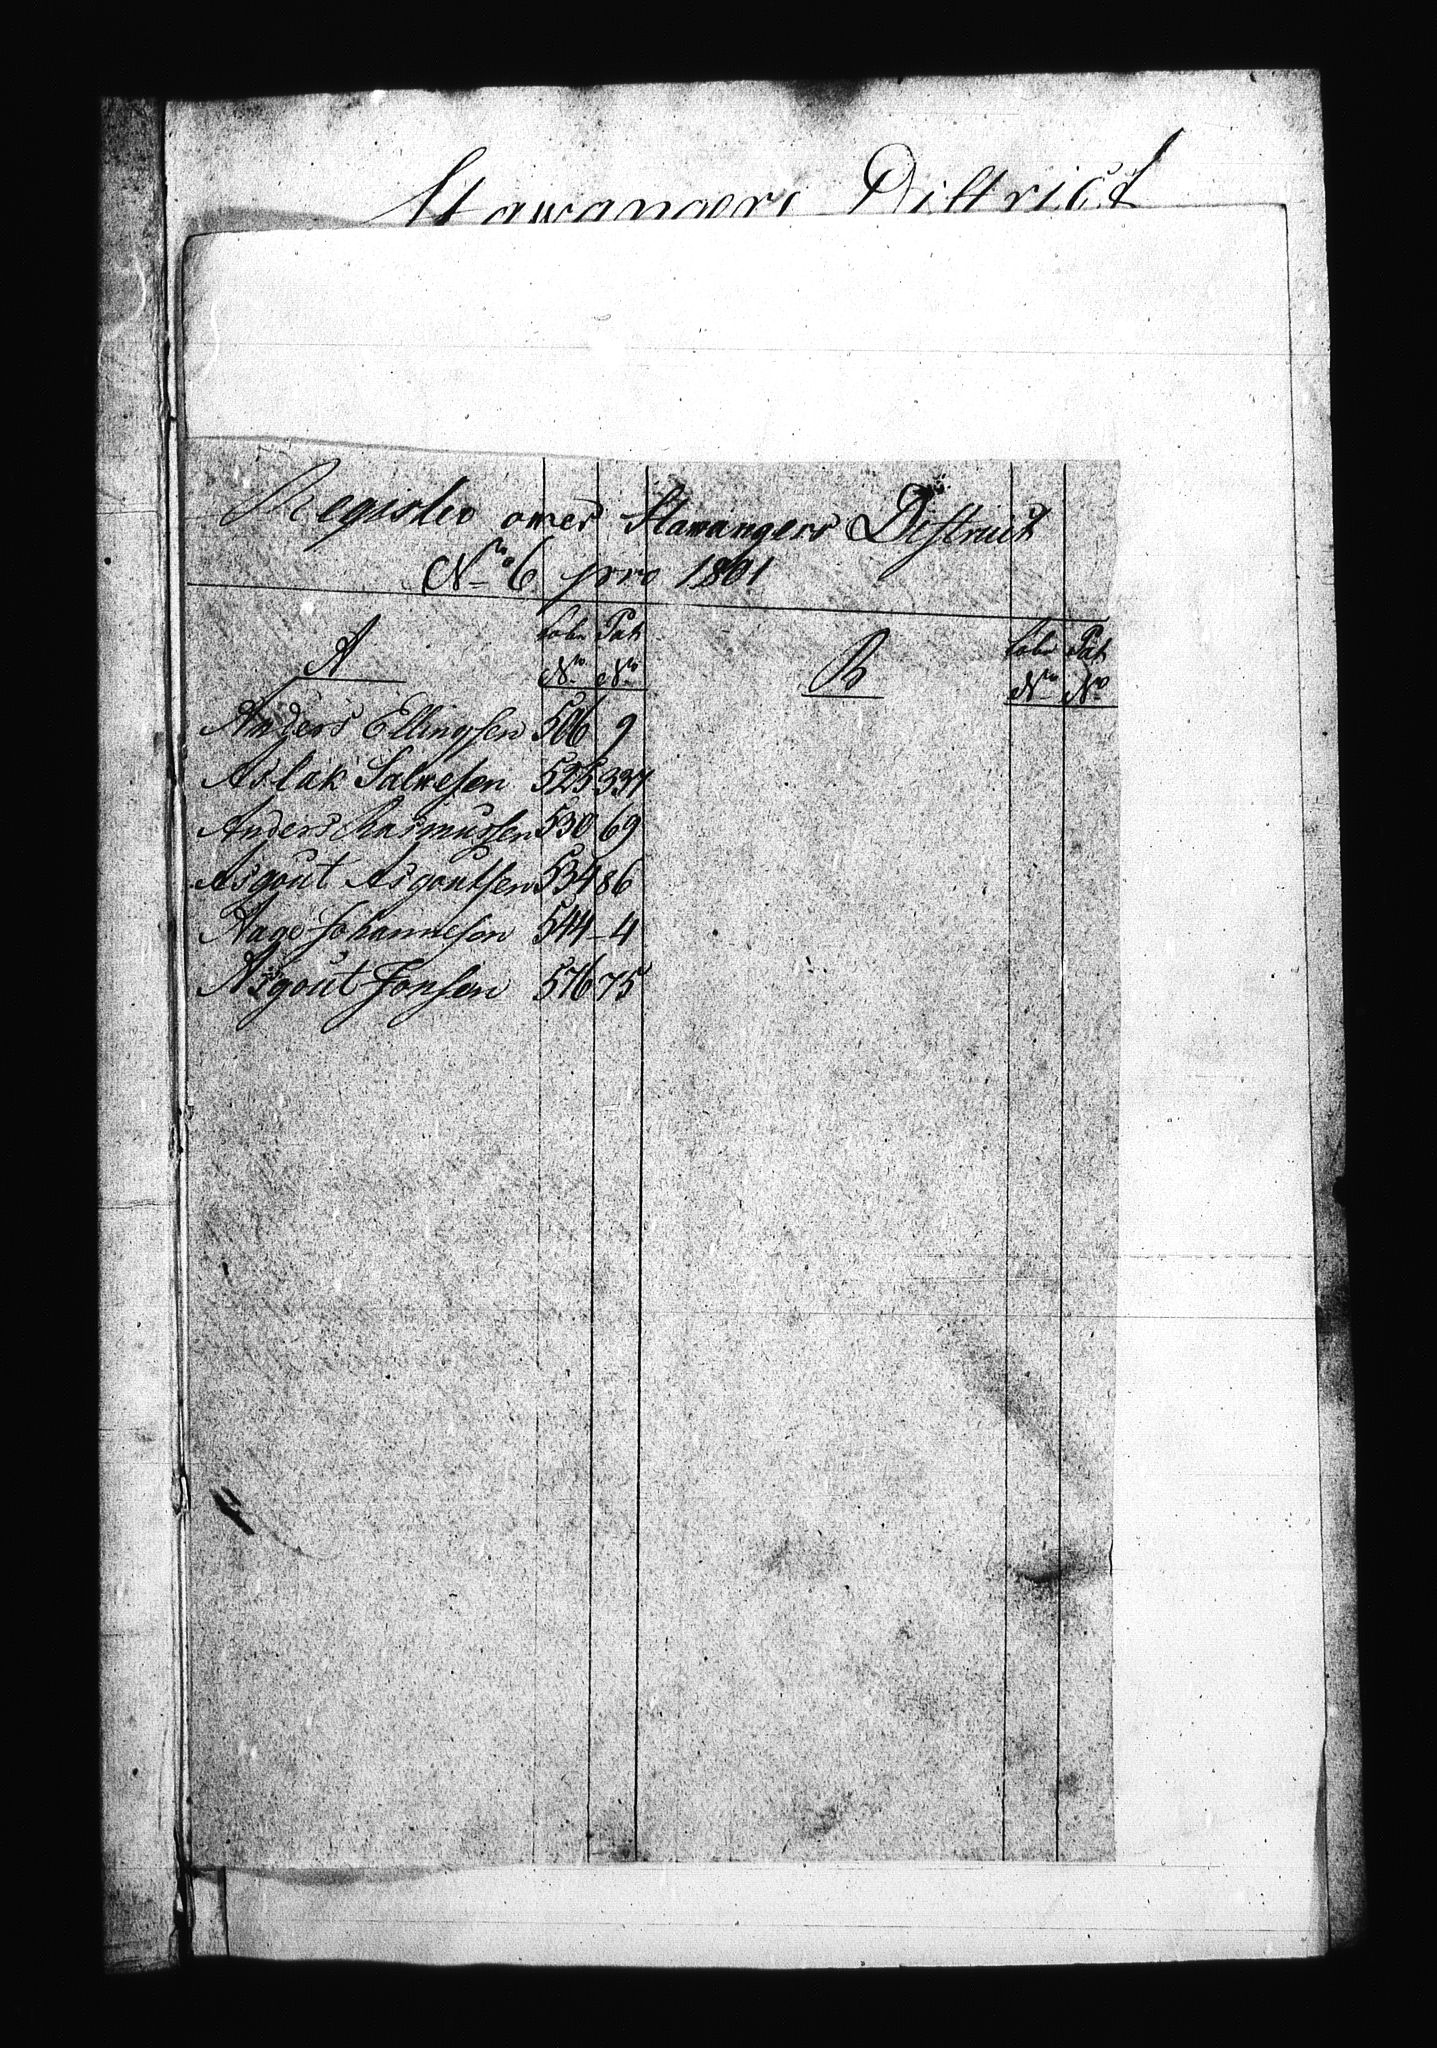 Stawangers District
Registер over Stawangers District
No 6 pro 1801
A Løbe No Pat No B Løbe No Pat No
Anders Ellingsen 506 9
Aslak Salvesen 525 337
Anders Rasmussen 530 69
Asgout Asgoutsen 534 86
Aage Johannesen 544 - 4
Asgout Jonsen 576 75